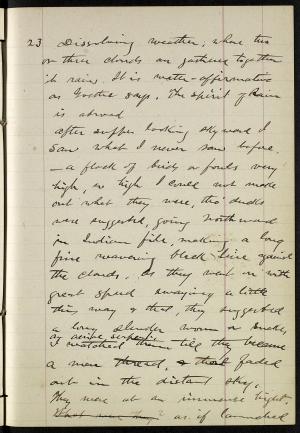 23 Dissolving weather, where two
or three clouds are gathered together
it rains. It is water-affirmative
as Goethe says. The spirit of Rain
is abroad
after supper looking skyward I
saw what I never saw before,
— a flock of birds or fowls very
high, so high I could not make
out what they were, tho' ducks
were suggested, going northward
in Indian file, making a long
fine wavering black line against
the clouds. As they went on with
great speed swaying a little
this way & that, they suggested
a long slender worm or snake,
an airine serpent
I watched them till they became
a mere thread, & that faded
out in the distant sky.
They were at an immense hight.
What were they? as if launched